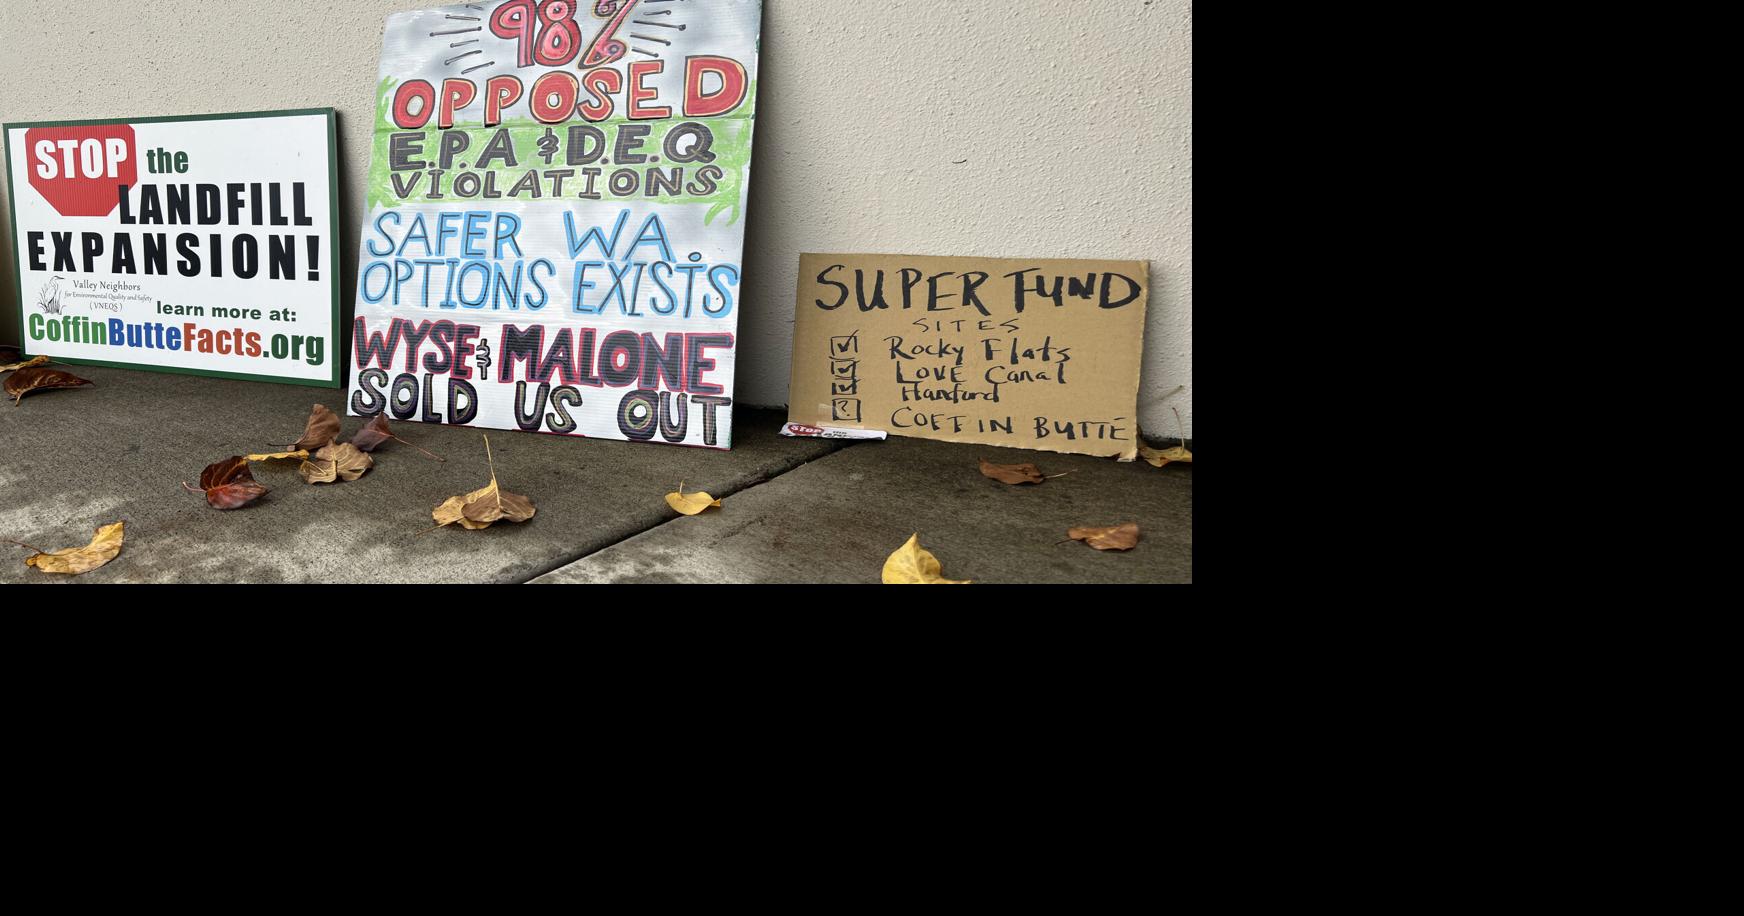 STOP the
LANDFILL
EXPANSION!
Valley Neighbors
for Environmental Quality and Safety
(VNEQS)
learn more at:
CoffinButteFacts.org
98%
OPPOSED
E.P.A & D.E.Q
VIOLATIONS
SAFER WA.
OPTIONS EXISTS
WYSE & MALONE
SOLD US OUT
SUPER FUND
SITES
Rocky Flats
LOVE Canal
Hanford
? COFFIN BUTTE
STOP the